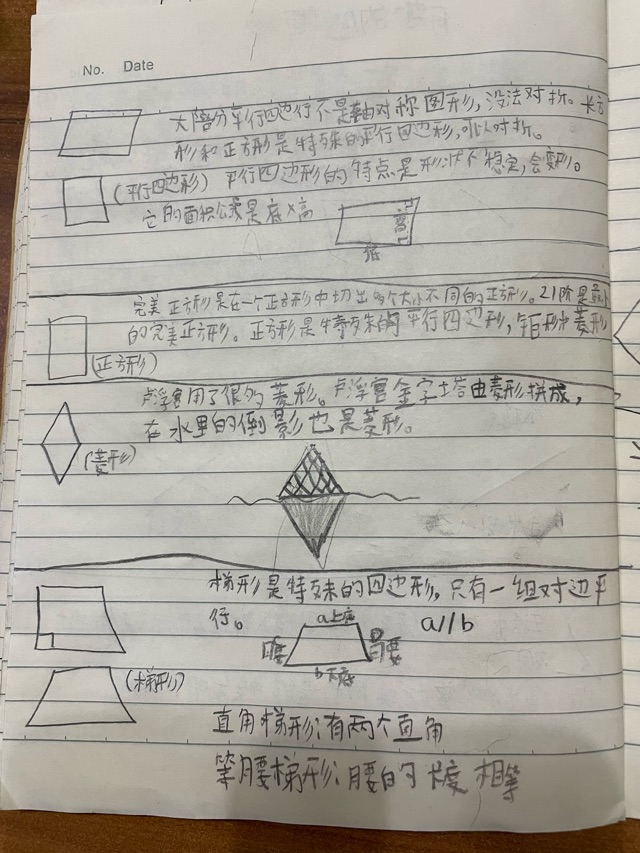 No. Date
大陪分平行四边行不是轴对称图形，没法对折。长方
形和正方形是特殊的平行四边形，可以对折。
(平行四边形) 平行四边形的特点是形状不稳定，会变形。
它的面积公式是底×高
高
底
完美正方形是在一个正方形中切出多个大小不同的正方形。21阶是最
的完美正方形。正方形是特殊的平行四边形，矩形和菱形
(正方形)
卢浮宫用了很多菱形。卢浮宫金字塔由菱形拼成，
在水里的倒影也是菱形。
(菱形)
梯形是特殊的四边形，只有一组对边平
行。
a上底
a//b
腰
腰
b下底
(梯形)
直角梯形：有两个直角
等腰梯形：腰的长度相等